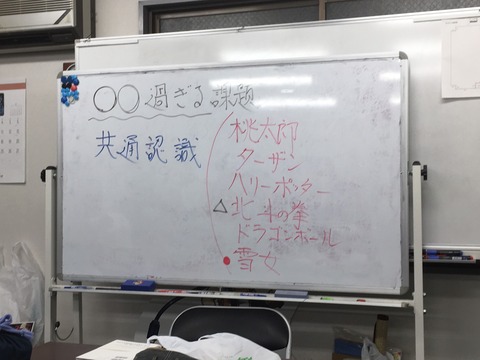 ○○過ぎる課題
共通認識
桃太郎
ターザン
ハリーポッター
△北斗の拳
ドラゴンボール
●雪女